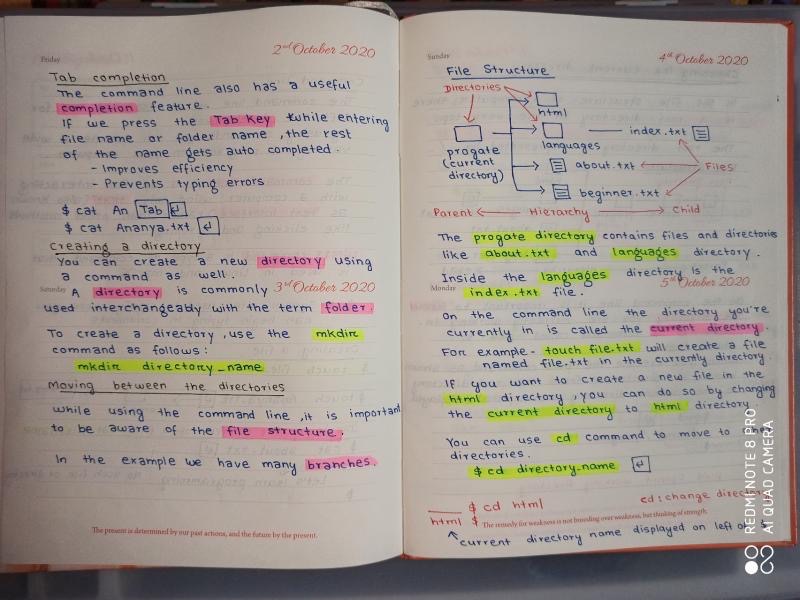 Friday
2nd October 2020
Tab completion
The command line also has a useful
completion feature.
If we press the Tab key while entering
file name or folder name, the rest
of the name gets auto completed.
- Improves efficiency
- Prevents typing errors
$ cat An Tab ↵
$ cat Ananya.txt ↵
Creating a directory
You can create a new directory using
a command as well.
Saturday
3rd October 2020
A directory is commonly
used interchangeably with the term folder.
To create a directory, use the mkdir
command as follows:
mkdir directory_name
Moving between the directories
while using the command line, it is important
to be aware of the file structure.
In the example we have many branches.
The present is determined by our past actions, and the future by the present.
Sunday
4th October 2020
File Structure
Directories
html
progate
(current
directory)
languages
index.txt
about.txt
Files
beginner.txt
Parent ← Hierarchy → Child
The progate directory contains files and directories
like about.txt and languages directory.
Inside the languages directory is the
Monday
5th October 2020
index.txt file.
On the command line the directory you're
currently in is called the current directory.
For example - touch file.txt will create a file
named file.txt in the currently directory.
If you want to create a new file in the
html directory, you can do so by changing
the current directory to html directory
You can use cd command to move to other
directories.
$ cd directory-name ↵
cd: change directory
$ cd html
html $
The remedy for weakness is not brooding over weakness, but thinking of strength.
current directory name displayed on left of $
REDMI NOTE 8 PRO
AI QUAD CAMERA